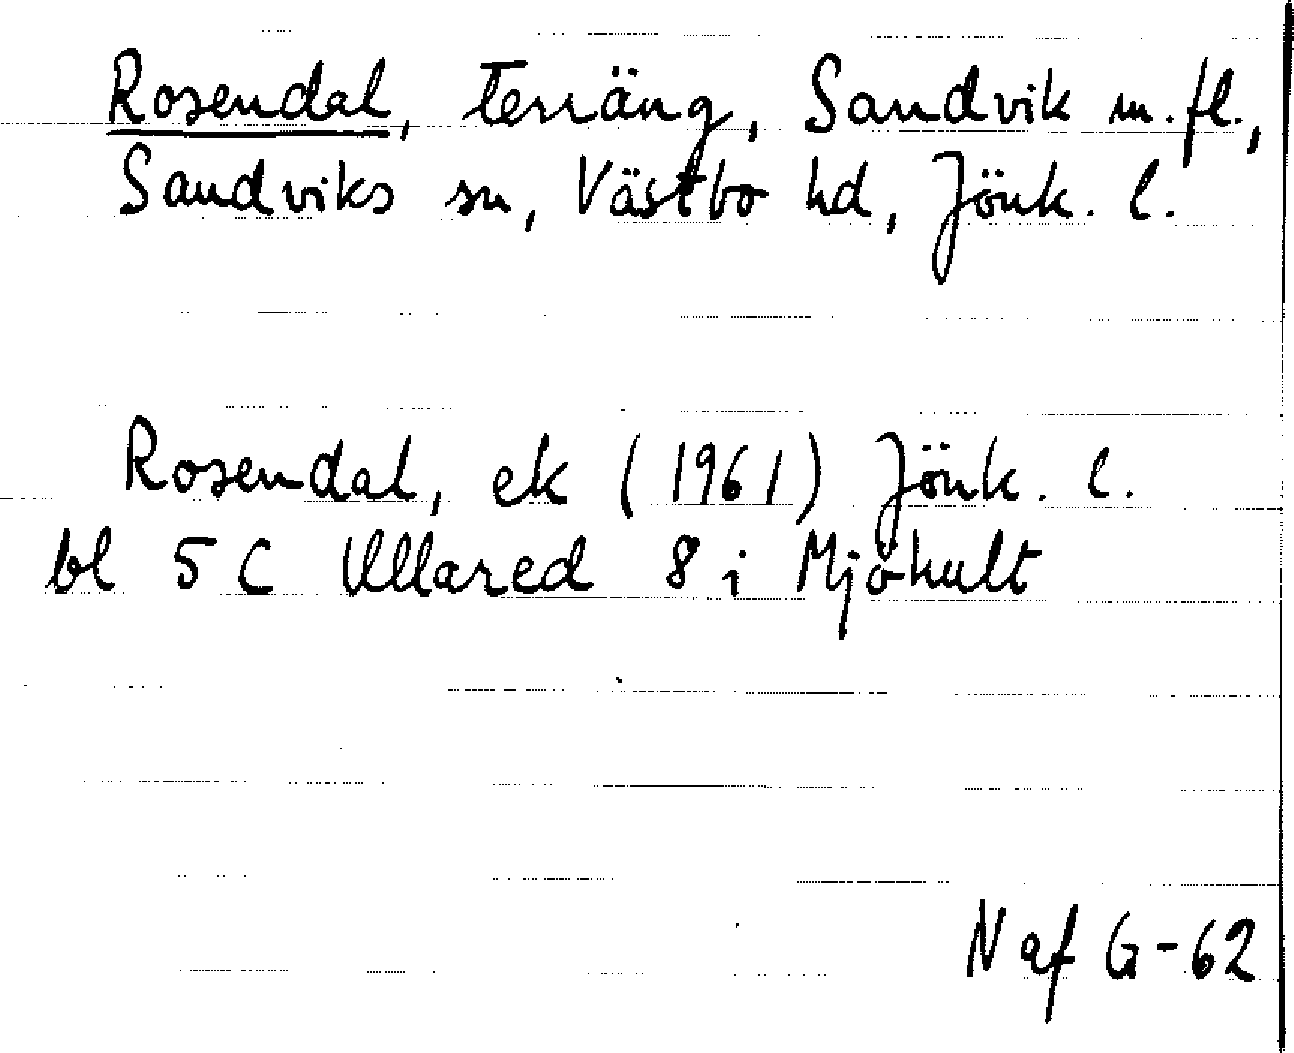 Rosendal, terräng, Sandvik m.fl.,
Sandviks sn, Västbo hd, Jönk. l.
Rosendal, ek (1961) Jönk. l.
bl 5 C Ullared 8 i Mjöhult
N af G-62